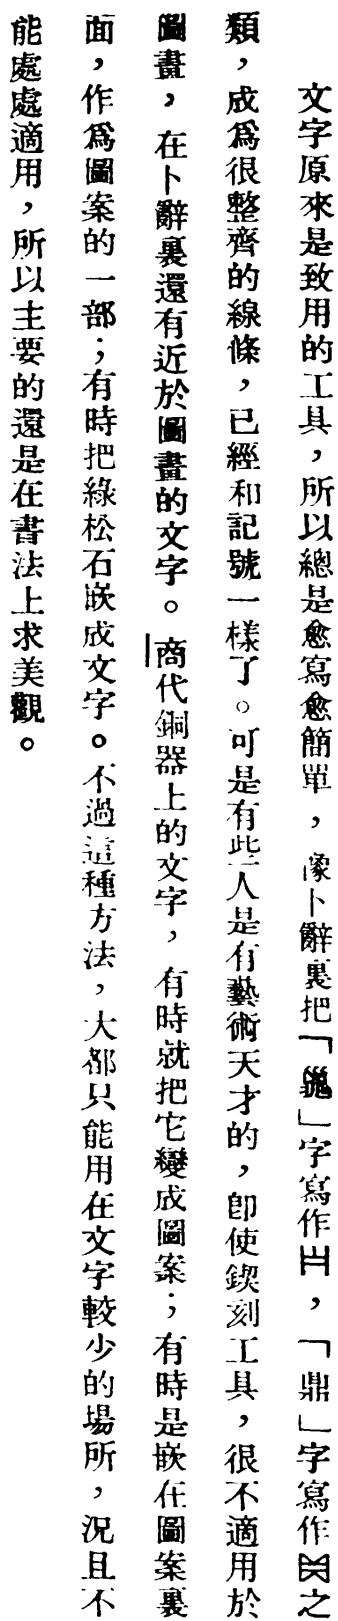 文字原來是致用的工具，所以總是愈寫愈簡單，像卜辭裏把「鬼」字寫作，「鼎」字寫作之
類，成爲很整齊的線條，已經和記號一樣了。可是有些人是有藝術天才的，卽使鍥刻工具，很不適用於
圖畫，在卜辭裏還有近於圖畫的文字。商代銅器上的文字，有時就把它變成圖案；有時是嵌在圖案裏
面，作爲圖案的一部；有時把綠松石嵌成文字。不過這種方法，大都只能用在文字較少的場所，況且不
能處處適用，所以主要的還是在書法上求美觀。